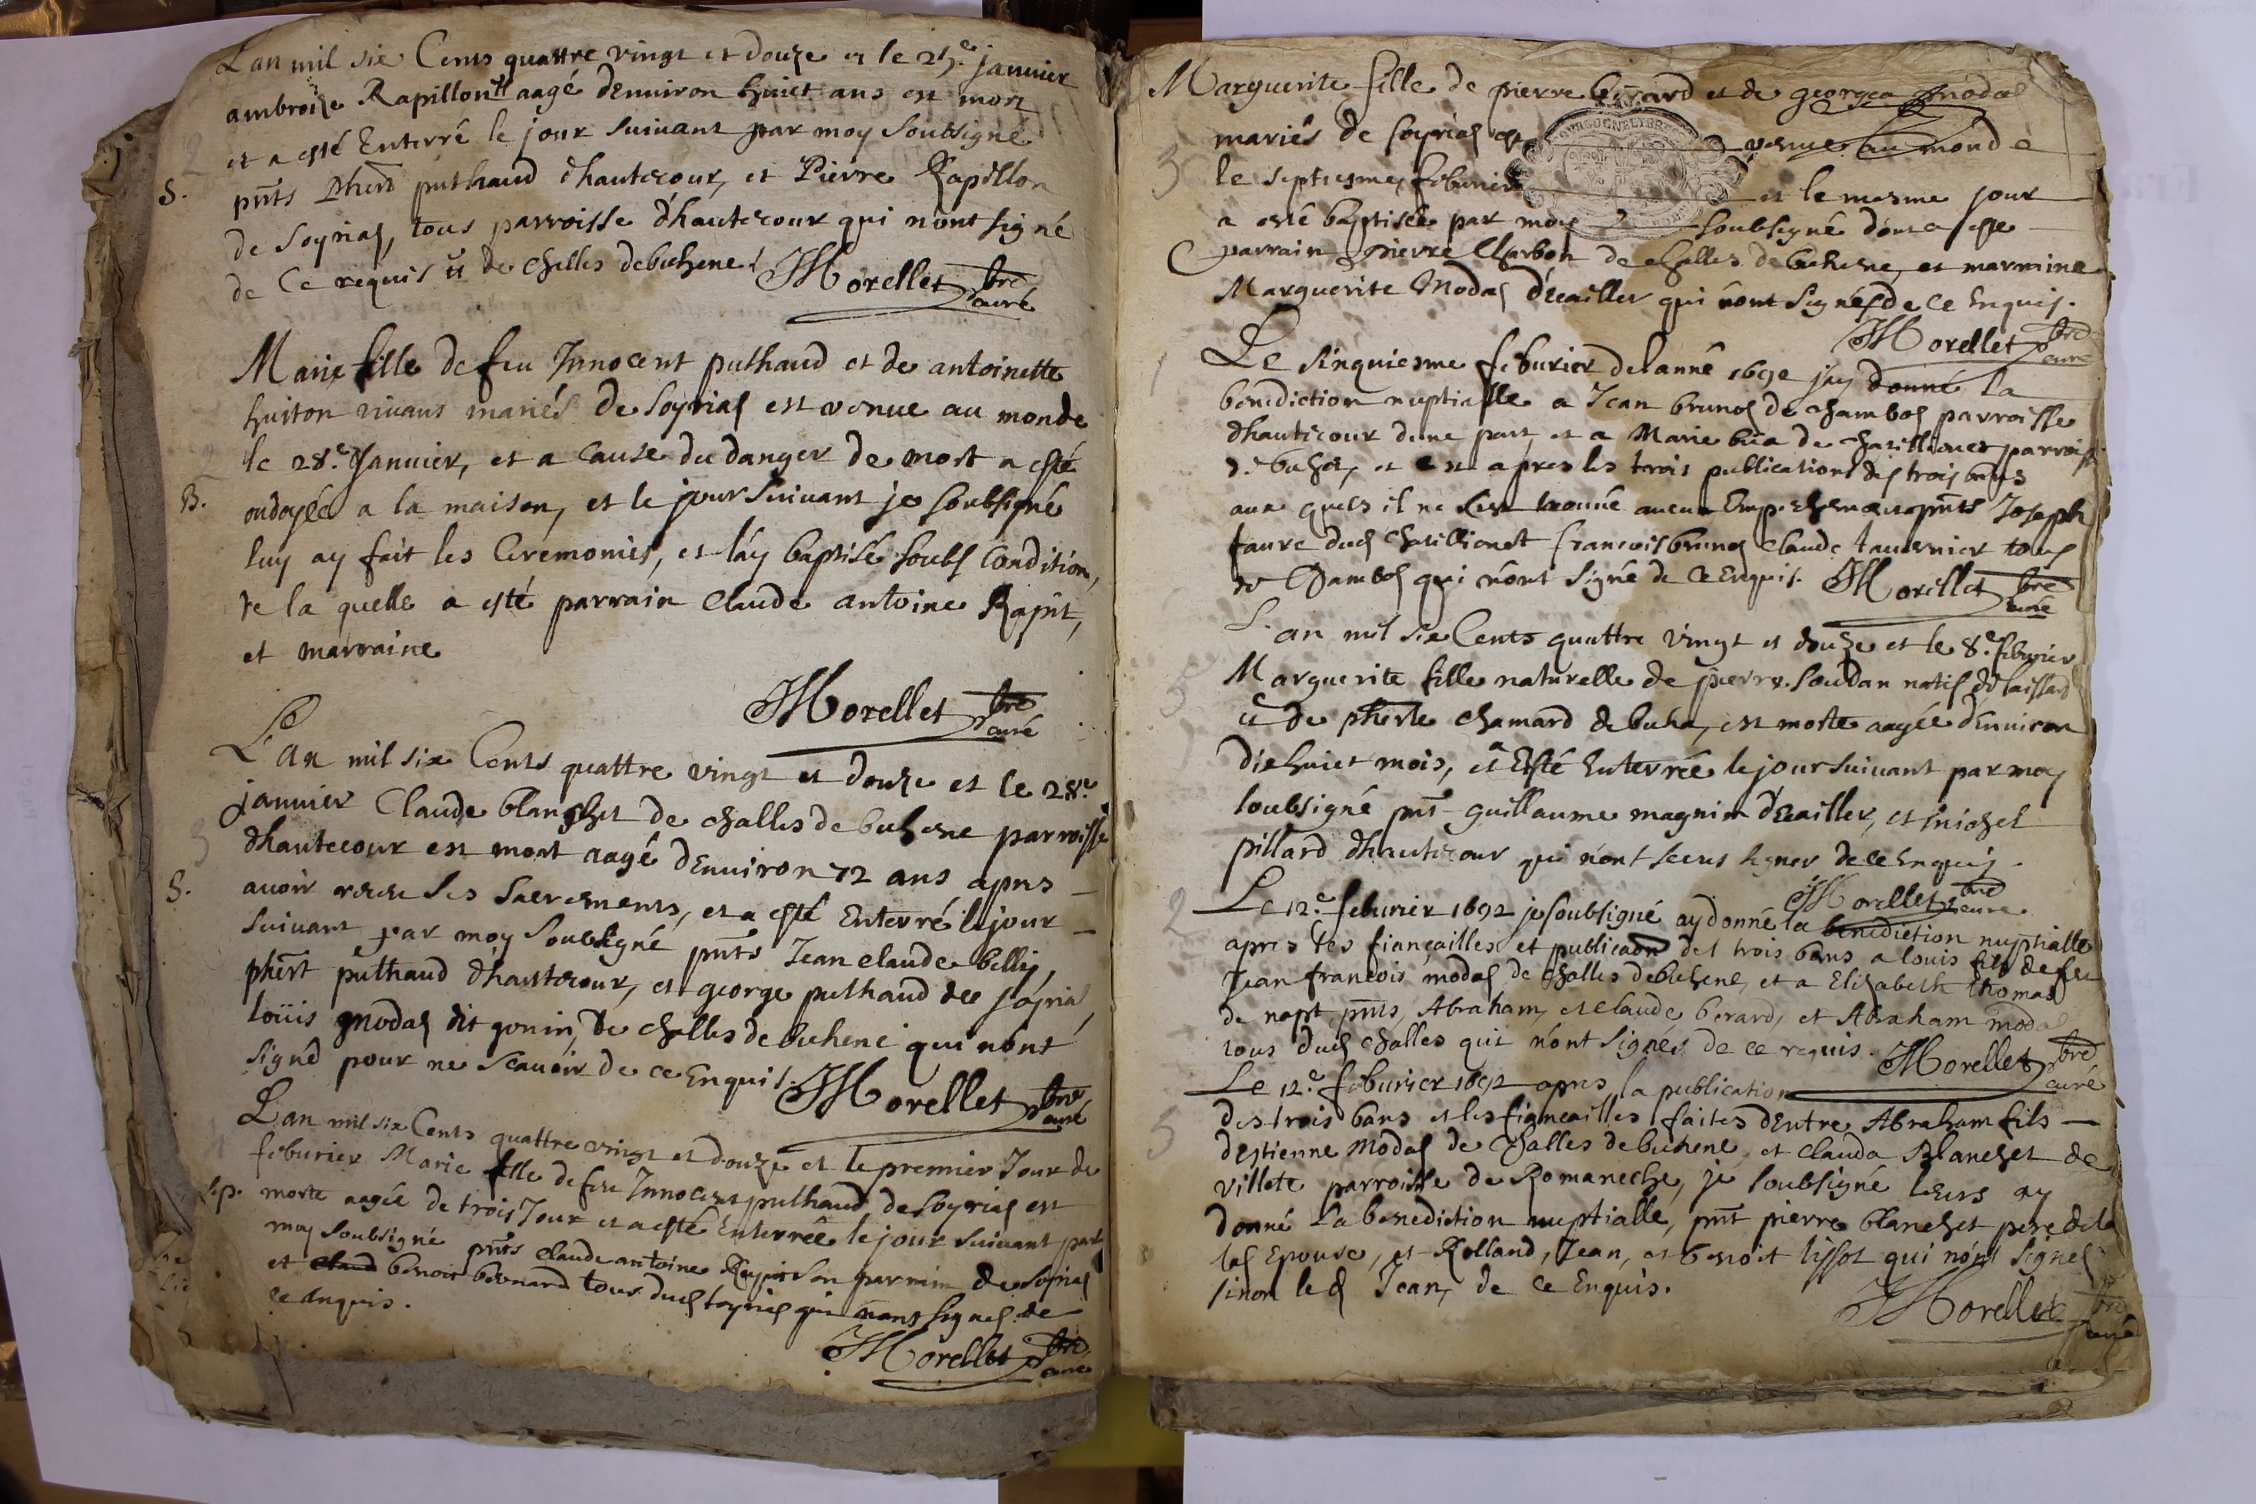 Lan mil six Cents quattre vingt et douze et le 25.e januier
ambroise Rapillont aagé d'Enuiron huict ans est mort
et a esté Enterré le jour suiuant par moy Soubsigné
S. pnts Phert puthaud d'hautecour, et Pierre Rapillon
de Soyria, tous parroisse d'hautecour qui n'ont signé
de Ce requis et de challes debuhene
JMorellet pbre
curé
Marie fille de feu Innocent puthaud et de antoinette
huiton viuans mariés de Soyria est venue au monde
le 28.e Januier, et a Cause du danger de mort a esté
B. ondoyée a la maison, et le jour suiuant je soubsigné
luy ay fait les Ceremonies, et l'ay baptisée soubs Condition,
de la quelle a esté parrain Claude antoine
et marraine
JMorellet pbre
curé
L'an mil six Cents quattre vingt et douze et le 28.e
januier Claude blanchet de challes de buhene parroisse
d'hautecour est mort aagé d'Enuiron 72 ans apres
S. auoir receu les sacrements, et a esté Enterré le jour
suiuant par moy soubsigné pnts Jean claude
phert puthaud d'hautecour, et george puthaud de soyria,
loüis modas dit gonin, de challes de buhene qui n'ont
signé pour ne scauoir de ce Enquis.
JMorellet pbre
curé
Lan mil six Cents quattre vingt et douze et le premier Jour de
feburier Marie fille de feu Innocent puthaud de soyria est
morte aagée de trois Jour et a esté Enterrée le jour suiuant par
moy soubsigné pnts claude antoine son parrain de soyria
et claud benoit bernard tous dud soyria qui n'ont signé de
ce enquis.
JMorellet pbre
curé
Marguerite fille de pierre berard et de georgea modas
mariés de soyria est venue au monde
le septiesme feburier et le mesme jour
a esté baptisée par moy soubsigné dont a esté
parrain pierre Charbon de challes de buhene, et marraine
Marguerite Modas d'écailler qui n'ont signés de ce Enquis.
JMorellet pbre
curé
Le sinquiesme feburier de l'anné 1692 j'ay donné la
benediction nuptialle a Jean brunos de chambos parroisse
d'hautecour d'une part, et a Marie de parroisse
de et ce apres les trois publications des trois bans
aux quels il ne s'est trouué aucun Empechement pnts Joseph
faure dud francois brunos Claude tauernier tous
de Chambos qui n'ont signé de ce Enquis. JMorellet pbre
curé
L'an mil six Cents quattre vingt et douze et le 8.e feburier
Marguerite fille naturelle de pierre soudan natif de
et de chamard de buha, est morte aagée d'enuiron
dixhuict mois, et a Esté Enterrée le jour suiuant par moy
soubsigné pnt guillaume magnin d'ecailler, et michel
pillard d'hautecour qui n'ont sceus signer de ce enquis.
JMorellet pbre
curé
Le 12.e feburier 1692 je soubsigné ay donné la benediction nuptialle
apres les fiançailles et publicaon des trois bans a louis fils de feu
Jean francois modas de challes de buhene, et a Elizabeth thomas
de napt pnts, Abraham, et claude berard, et Abraham modas
tous dud challes qui n'ont signés de ce requis. JMorellet pbre
curé
Le 12.e feburier 1692 apres la publication
des trois bans et les fiancailles faites d'Entre Abraham fils
d'Estienne Modas de Challes de buhene, et clauda Blanchet de
villete parroisse de Romaneche, je soubsigné leurs ay
donné la benediction nuptialle, pnt pierre blanchet pere de la
lad Epouse, et Rolland, Jean, et benoit lissot qui n'ont signés
sinon led Jean, de ce Enquis.
JMorellet pbre
curé